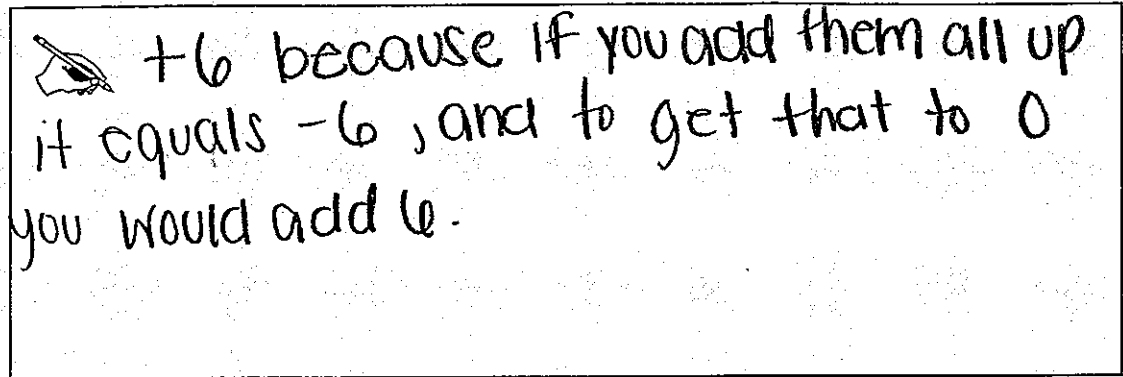 +6 because if you add them all up
it equals -6, and to get that to 0
you would add 6.